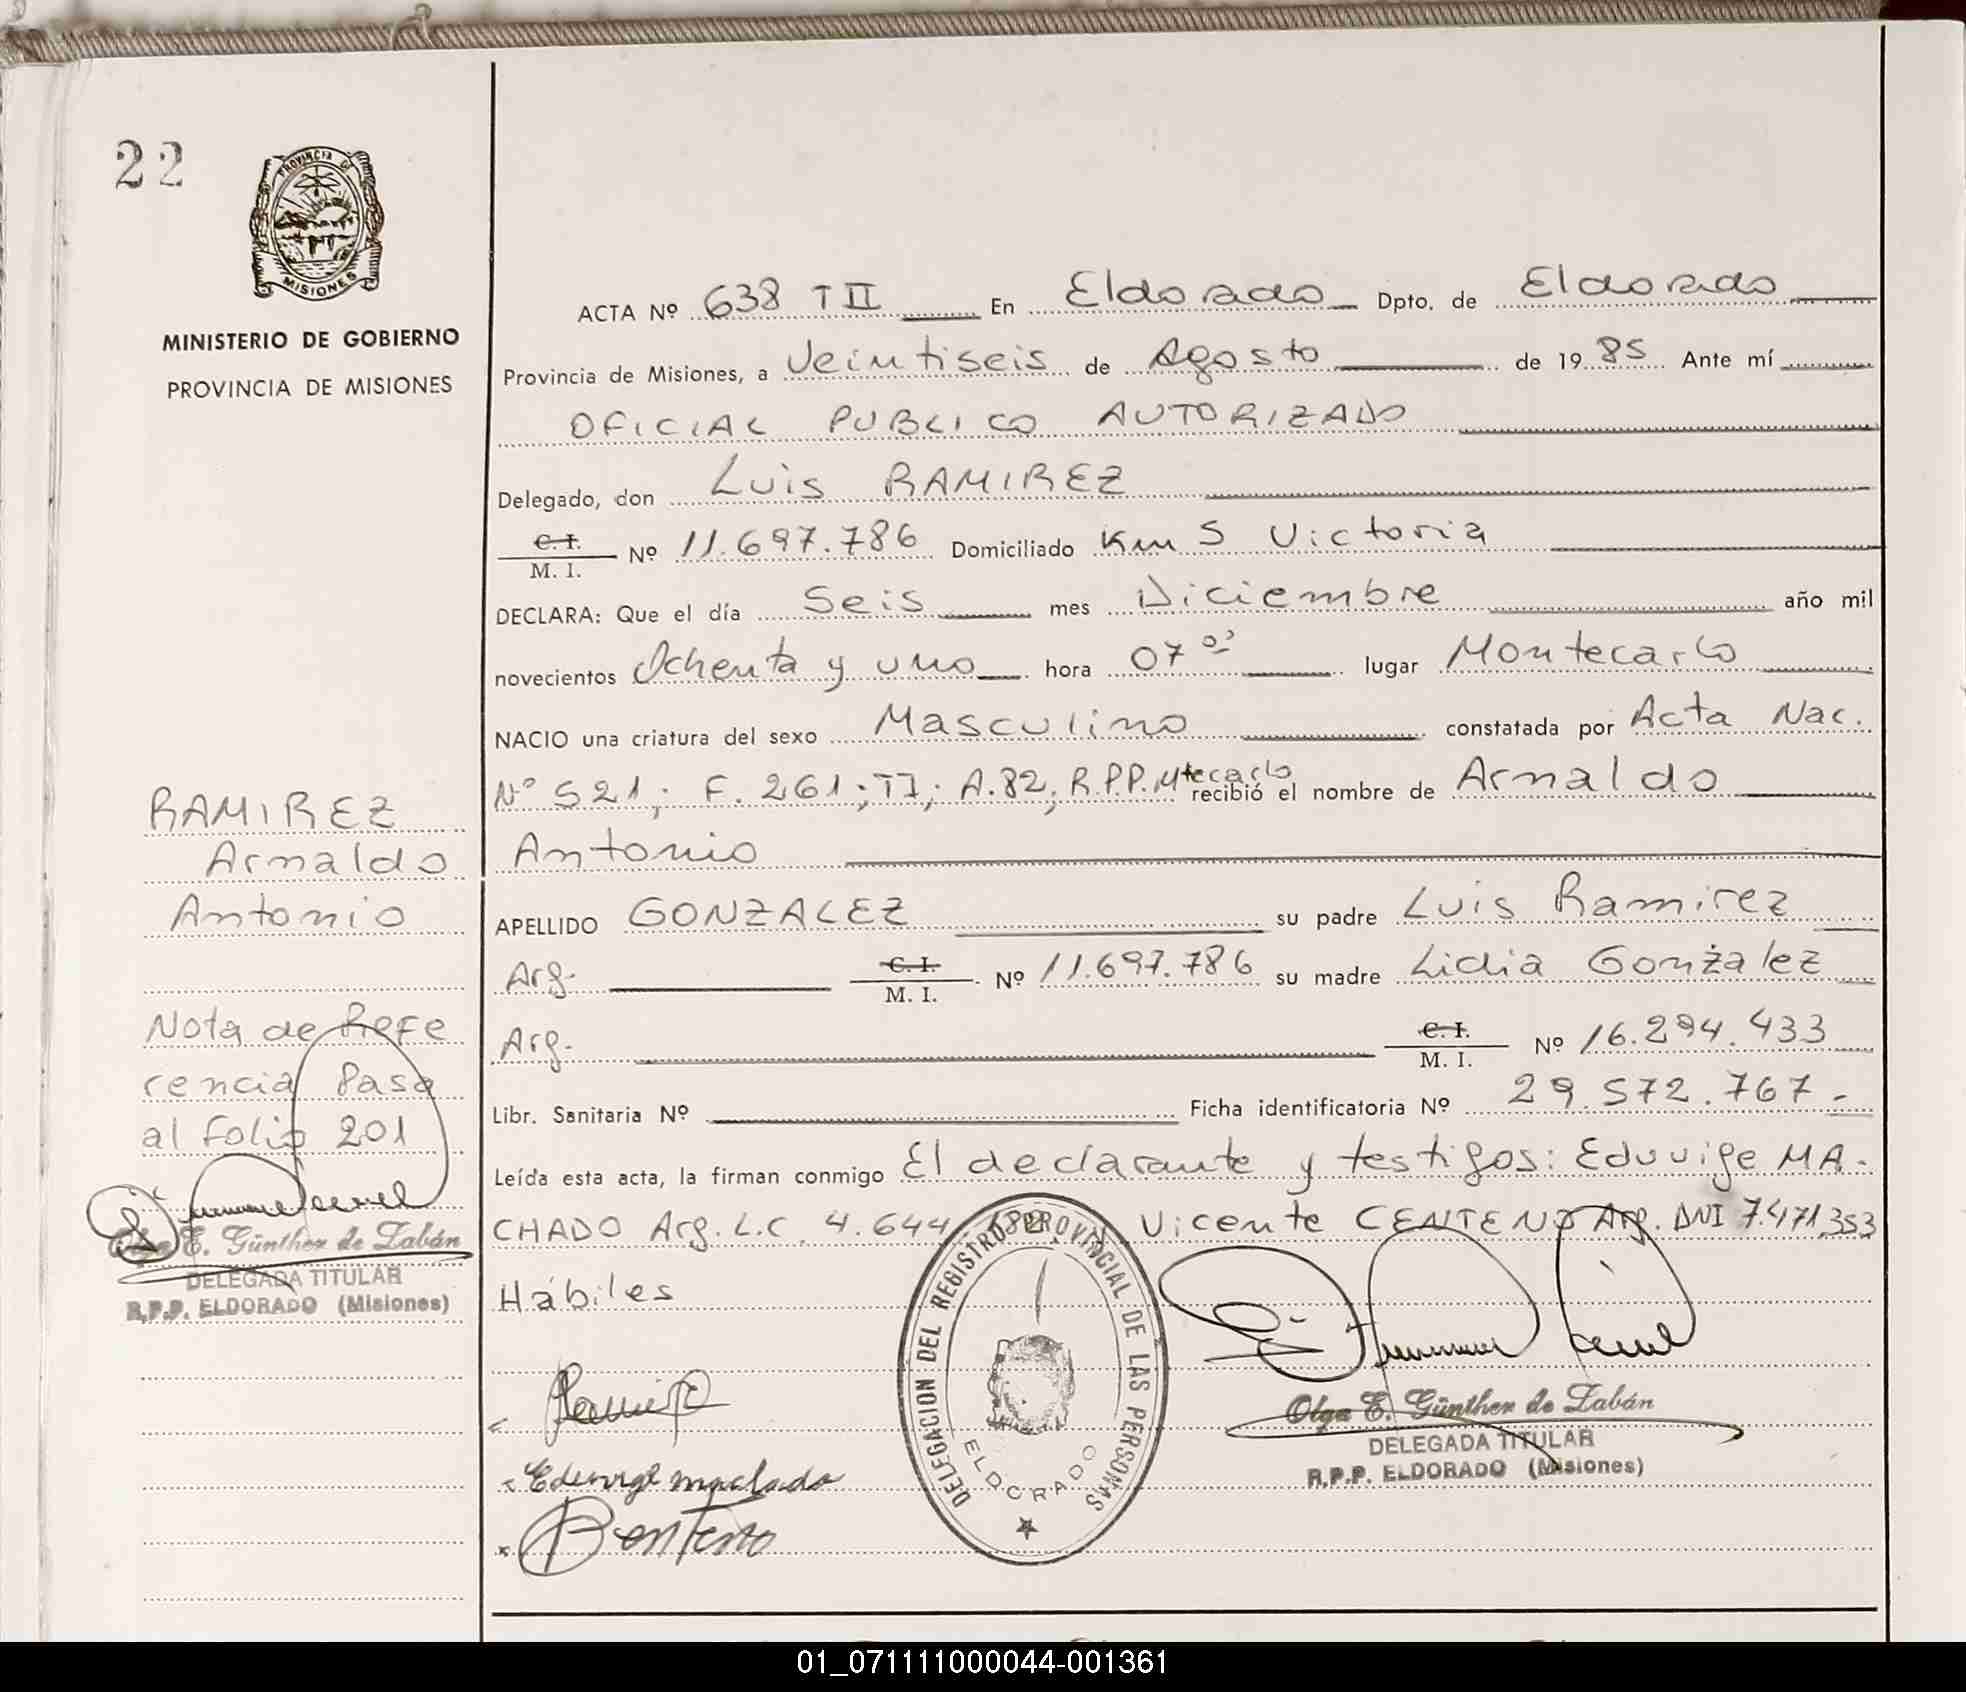 22
PROVINCIA DE
MISIONES
MINISTERIO DE GOBIERNO
PROVINCIA DE MISIONES
RAMIREZ
Arnaldo
Antonio
Nota de Refe
rencia Pasa
al folio 201
Olga E. Günther de Zabán
DELEGADA TITULAR
R.P.P. ELDORADO (Misiones)
ACTA Nº 638 T II En Eldorado Dpto. de Eldorado
Provincia de Misiones, a Veintiseis de Agosto de 1985 Ante mí
OFICIAL PUBLICO AUTORIZADO
Delegado, don Luis RAMIREZ
C. I.
M. I. Nº 11.697.786 Domiciliado Km 5 Victoria
DECLARA: Que el día Seis mes Diciembre año mil
novecientos Ochenta y uno hora 07 00 lugar Montecarlo
NACIO una criatura del sexo Masculino constatada por Acta Nac.
Nº 521; F. 261; TI; A.82; R.P.P. Mtecarlo recibió el nombre de Arnaldo
Antonio
APELLIDO GONZALEZ su padre Luis Ramirez
Arg. C. I.
M. I. Nº 11.697.786 su madre Lidia Gonzalez
Arg. C. I.
M. I. Nº 16.294.433
Libr. Sanitaria Nº Ficha identificatoria Nº 29.572.767.-
Leída esta acta, la firman conmigo El declarante y testigos: Eduvige MA-
CHADO Arg. L.C. 4.644. Vicente CENTENO Arg. DNI 7.471.353
Hábiles
DELEGACION DEL REGISTRO PROVINCIAL DE LAS PERSONAS
ELDORADO
Ramirez
Eduvige machado
Centeno
Olga E. Günther de Zabán
DELEGADA TITULAR
R.P.P. ELDORADO (Misiones)
01_071111000044-001361